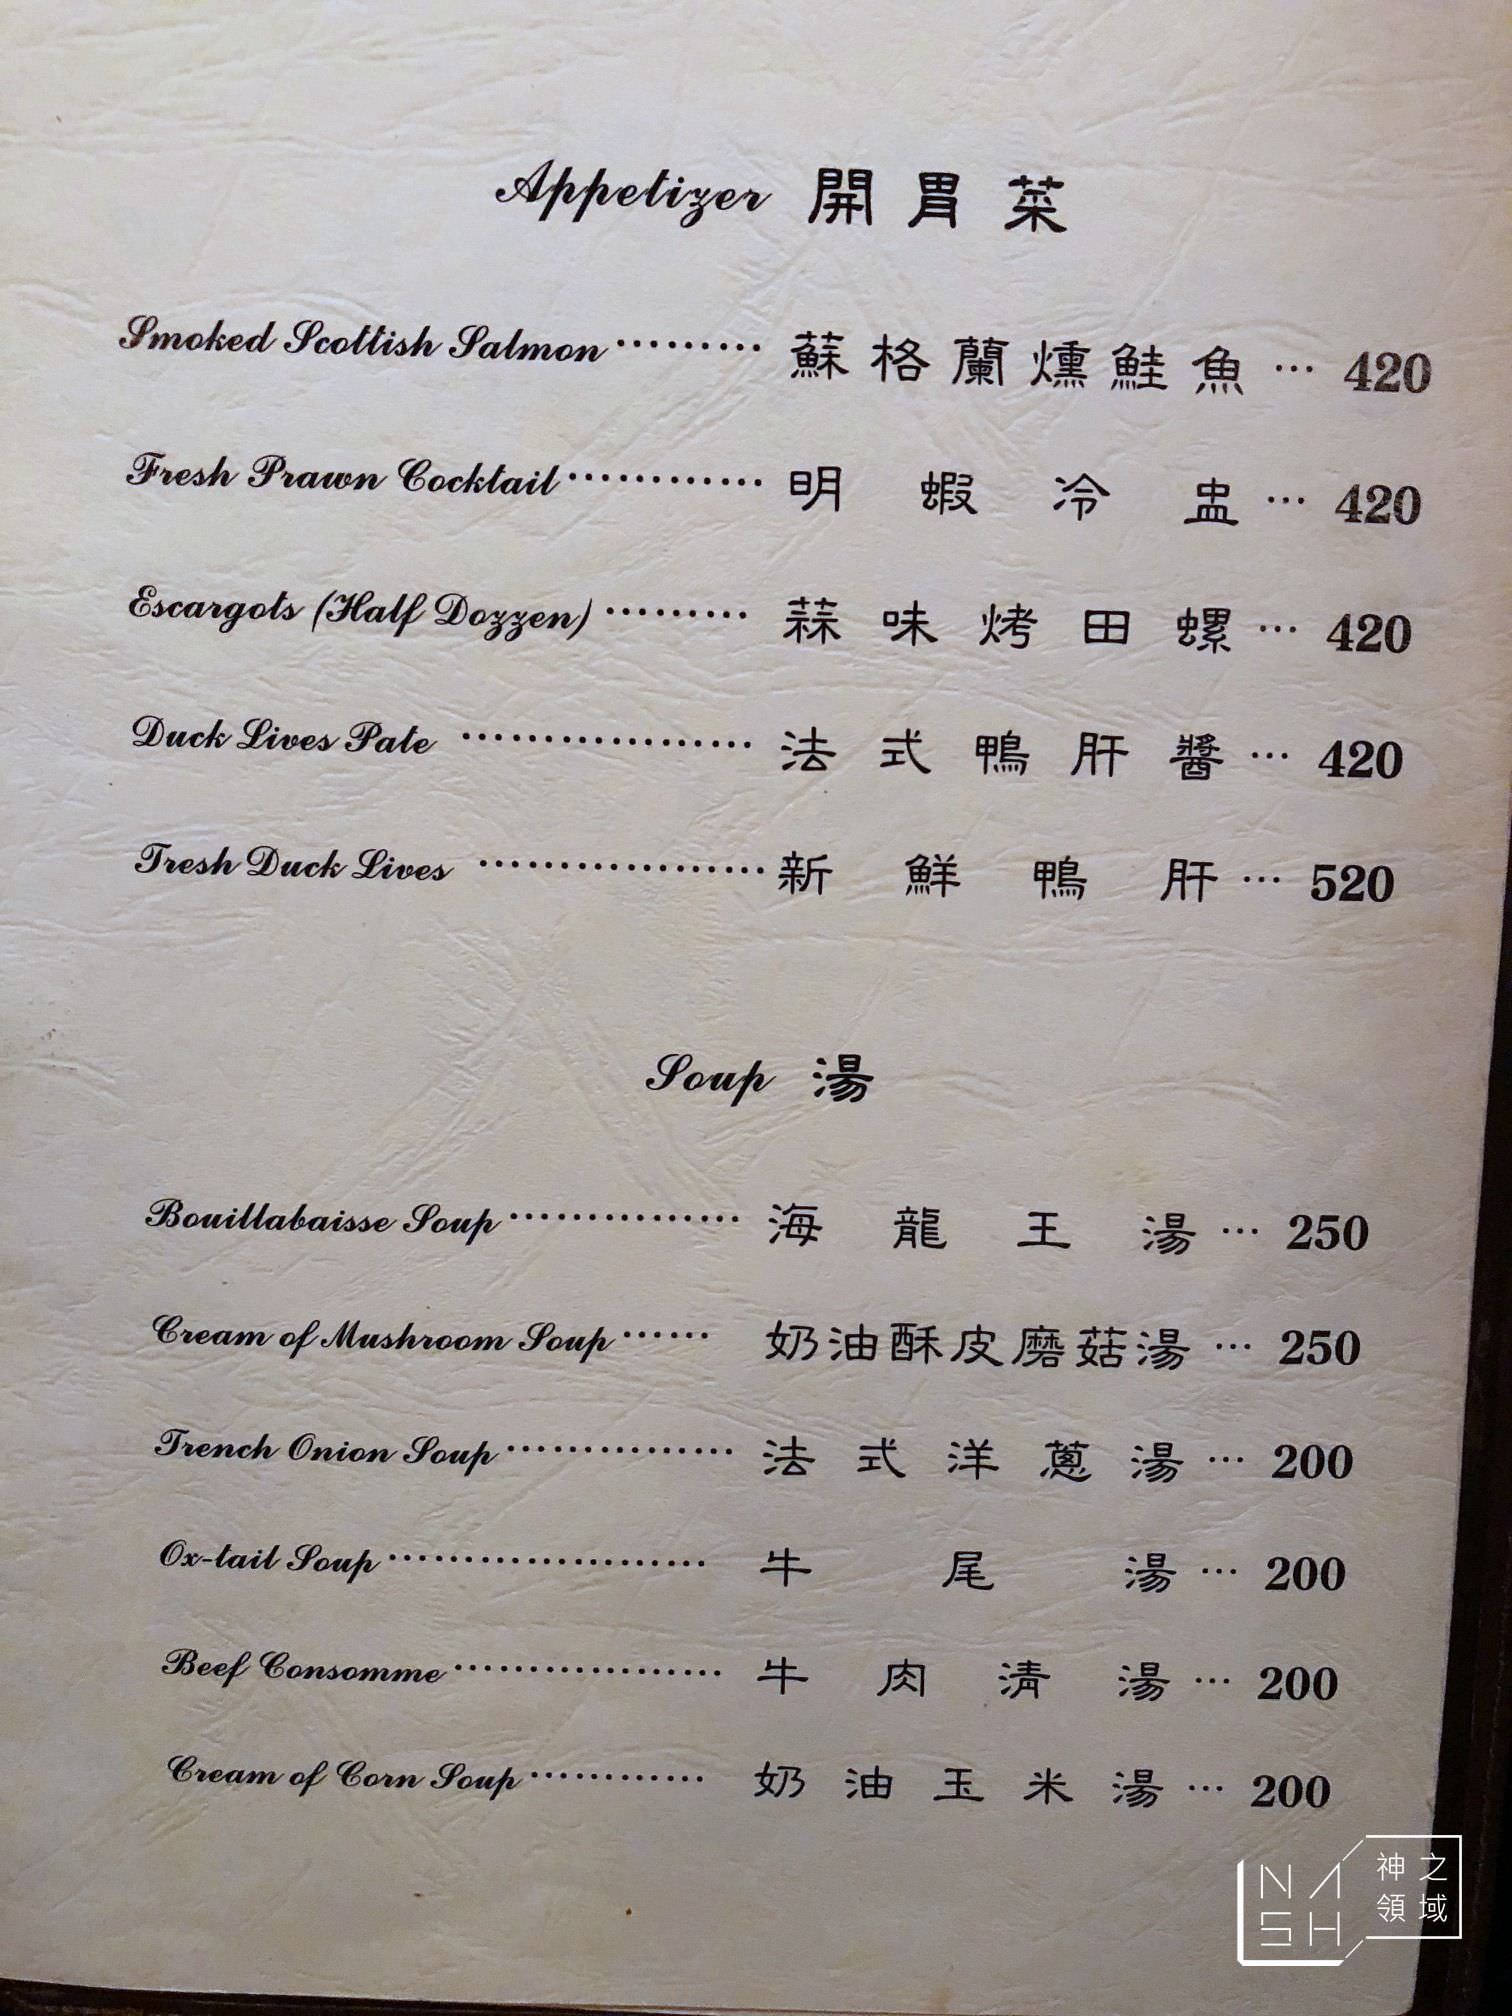 Appetizer 開胃菜
Smoked Scottish Salmon ········· 蘇格蘭燻鮭魚 ··· 420
Fresh Prawn Cocktail ············ 明蝦冷盅 ··· 420
Escargots (Half Dozzen) ········· 蒜味烤田螺 ··· 420
Duck Lives Pate ·················· 法式鴨肝醬 ··· 420
Tresh Duck Lives ·················· 新鮮鴨肝 ··· 520
Soup 湯
Bouillabaisse Soup ··············· 海龍王湯 ··· 250
Cream of Mushroom Soup ······ 奶油酥皮磨菇湯 ··· 250
Trench Onion Soup ··············· 法式洋蔥湯 ··· 200
Ox-tail Soup ····················· 牛尾湯 ··· 200
Beef Consomme ·················· 牛肉清湯 ··· 200
Cream of Corn Soup ············ 奶油玉米湯 ··· 200
NASH 神之領域